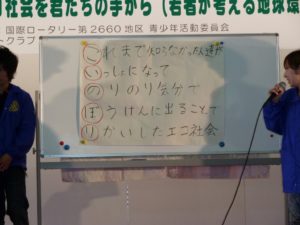 社会を君たちの手から（若者が考える地球環
国際ロータリー第2660地区 青少年活動委員会
トクラブ
これまで知らなかった人達が
いっしょになって
のりのり気分で
ぼうけんに出ることで
りかいしたエコ社会